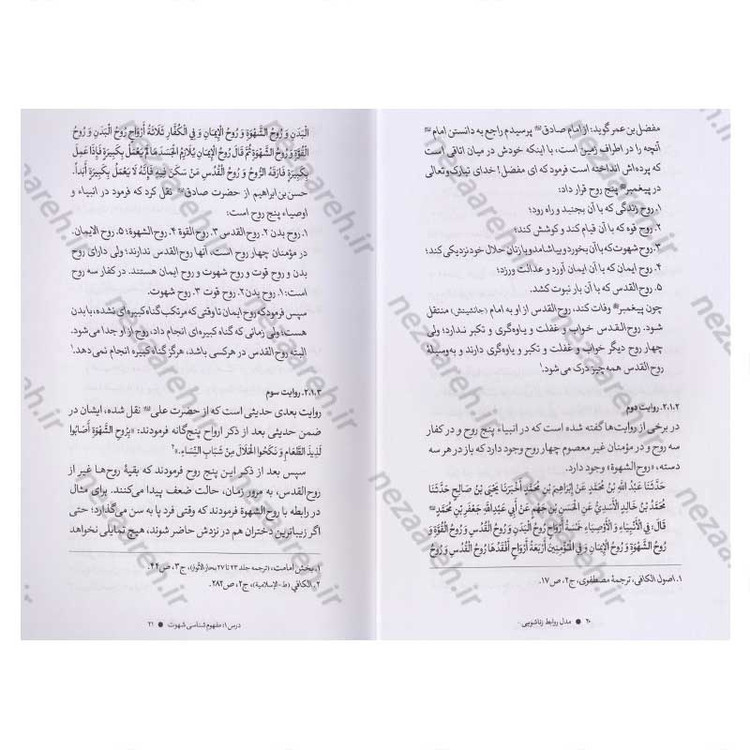 مفضل بن عمر گوید: از امام صادق پرسیدم راجع به دانستن امام
آنچه را در اطراف زمین است، با اینکه خودش در میان اتاقی است
که پرده‌اش انداخته است فرمود که ای مفضل! خدای تبارک و تعالی
در پیغمبر پنج روح قرار داد:
۱. روح زندگی که با آن بجنبد و راه رود؛
۲. روح قوه که با آن قیام کند و کوشش کند؛
۳. روح شهوت که با آن بخورد و بیاشامد و با زنان حلال خود نزدیکی کند؛
۴. روح ایمان که با آن ایمان آورد و عدالت ورزد؛
۵. روح‌القدس که با آن بار نبوت کشد.
چون پیغمبر وفات کند، روح‌القدس از او به امام (جانشینش) منتقل
شود. روح‌القدس خواب و غفلت و یاوه‌گری و تکبر ندارد؛ ولی
چهار روح دیگر خواب و غفلت و تکبر و یاوه‌گری دارند و به‌وسیلهٔ
روح‌القدس همه چیز درک می‌شود.۱
۲.۱.۲. روایت دوم
در برخی از روایت‌ها گفته شده است که در انبیاء پنج روح و در کفار
سه روح و در مؤمنان غیر معصوم چهار روح وجود دارد که باز در هر سه
دسته، «روح الشهوة» وجود دارد.
حَدَّثَنَا عَبْدُ اللهِ بْنُ مُحَمَّدٍ عَنْ إِبْرَاهِيمَ بْنِ مُحَمَّدٍ أَخْبَرَنَا يَحْيَى بْنُ صَالِحٍ حَدَّثَنَا
مُحَمَّدُ بْنُ خَالِدٍ الْأَسَدِيُّ عَنِ الْحَسَنِ بْنِ جَهْمٍ عَنْ أَبِي عَبْدِاللهِ جَعْفَرِ بْنِ مُحَمَّدٍ
قَالَ: فِي الْأَنْبِيَاءِ وَ الْأَوْصِيَاءِ خَمْسَةُ أَرْوَاحٍ رُوحُ الْبَدَنِ وَ رُوحُ الْقُدُسِ وَ رُوحُ الْقُوَّةِ وَ
رُوحُ الشَّهْوَةِ وَ رُوحُ الْإِيمَانِ وَ فِي الْمُؤْمِنِينَ أَرْبَعَةُ أَرْوَاحٍ أَفْقَدَهَا رُوحُ الْقُدُسِ وَ رُوحُ
۱. اصول الکافی، ترجمهٔ مصطفوی، ج۲، ص۱۷.
۲۰ ● مدل روابط زناشویی
الْبَدَنِ وَ رُوحُ الشَّهْوَةِ وَ رُوحُ الْإِيمَانِ وَ فِي الْكُفَّارِ ثَلَاثَةُ أَرْوَاحٍ رُوحُ الْبَدَنِ وَ رُوحُ
الْقُوَّةِ وَ رُوحُ الشَّهْوَةِ ثُمَّ قَالَ رُوحُ الْإِيمَانِ يُلَازِمُ الْجَسَدَ مَا لَمْ يَعْمَلْ بِكَبِيرَةٍ فَإِذَا عَمِلَ
بِكَبِيرَةٍ فَارَقَهُ الرُّوحُ وَ رُوحُ الْقُدُسِ مَنْ سَكَنَ فِيهِ فَإِنَّهُ لَا يَعْمَلُ بِكَبِيرَةٍ أَبَداً.
حسن بن ابراهیم از حضرت صادق نقل کرد که فرمود در انبیاء و
اوصیاء پنج روح است:
۱. روح بدن ۲. روح القدس ۳. روح القوة ۴. روح الشهوة؛ ۵. روح الایمان.
در مؤمنان چهار روح است، آنها روح القدس ندارند؛ ولی دارای روح
بدن و روح قوت و روح شهوت و روح ایمان هستند. در کفار سه روح
است: ۱. روح بدن ۲. روح قوت ۳. روح شهوت.
سپس فرمود که روح ایمان تا وقتی که مرتکب گناه کبیره‌ای نشده، با بدن
هست؛ ولی زمانی که گناه کبیره‌ای انجام داد، روح از او جدا می‌شود.
البته روح‌القدس در هرکسی باشد، هرگز گناه کبیره انجام نمی‌دهد.۱
۲.۱.۳. روایت سوم
روایت بعدی حدیثی است که از حضرت علی نقل شده، ایشان در
ضمن حدیثی بعد از ذکر ارواح پنج‌گانه فرمودند: «بِرُوحِ الشَّهْوَةِ أَصَابُوا
لَذِيذَ الطَّعَامِ وَ نَكَحُوا الْحَلَالَ مِنْ شَبَابِ النِّسَاءِ.»۲
سپس بعد از ذکر این پنج روح فرمودند که بقیهٔ روح‌ها غیر از
روح‌القدس، به مرور زمان، حالت ضعف پیدا می‌کنند. برای مثال
در رابطه با روح الشهوة فرمودند که وقتی فرد پا به سن می‌گذارد؛ حتی
اگر زیباترین دختران هم در نزدش حاضر شوند، هیچ تمایلی نخواهد
۱. بخش امامت، (ترجمه جلد ۲۳ تا ۲۷ بحار الأنوار)، ج۳، ص۴۴.
۲. الکافي (ط-الإسلامیة)، ج۲، ص۲۸۲.
درس ۱: مفهوم شناسی شهوت ● ۲۱
nezaareh.ir